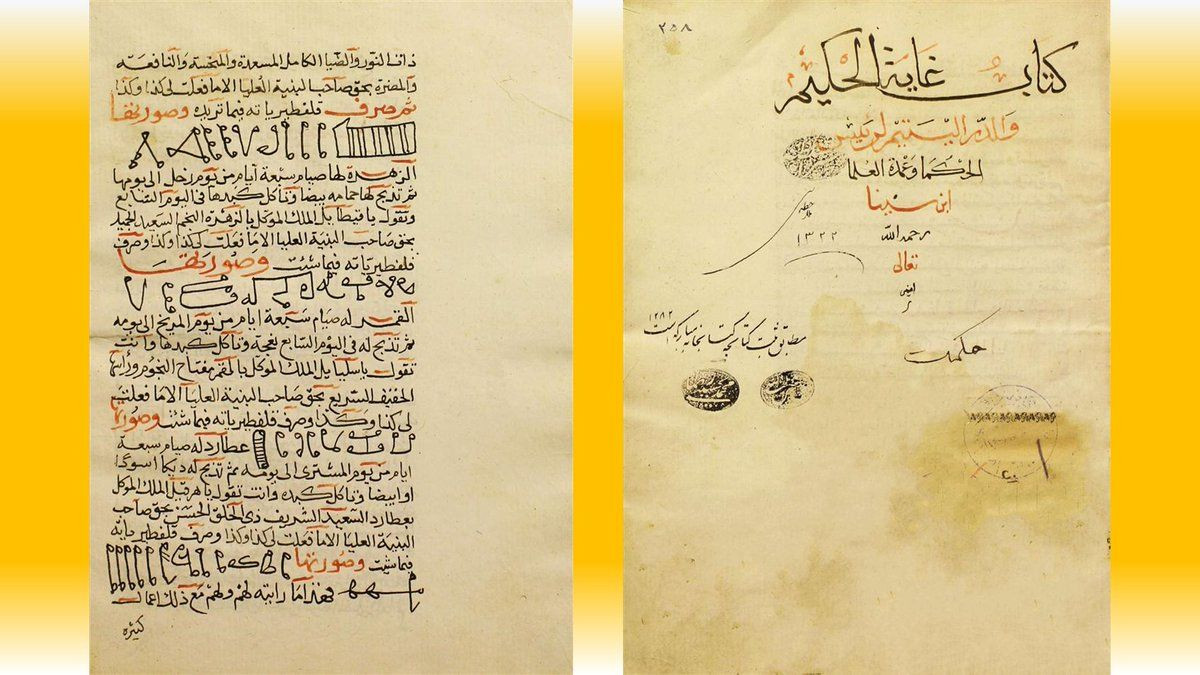 ذات النور والضيا الكامل المسعدة والمنحسة والنافعة
والمضرة بحق صاحب البنية العليا الاما فعلت لى كذا وكذا
ثم صرف قلفطيرياته فيما تريده وصورتها
الزهرة لها صيام سبعة أيام من يوم زحل الى يومها
ثم تذبح لها حمامه بيضا وتأكل كبدها فى اليوم السابع
وتقول يا بيطاييل الملك الموكل بالزهرة النجم السعيد الجيد
بحق صاحب البنية العليا الاما فعلت لى كذا وكذا وصرف
قلفطيرياته فيما شئت وصورتها
القمر له صيام سبعة ايام من يوم المريخ الى يومه
ثم تذبح له فى اليوم السابع نعجة وتأكل كبدها وانت
تقول يا سلياييل الملك الموكل بالقمر مفتاح النجوم ورأسها
الخفيف السريع بحق صاحب البنية العليا الاما فعلت
لى كذا وكذا وصرف قلفطيرياته فيما شئت وصورتها
عطارد له صيام سبعة
ايام من يوم المشترى الى يومه ثم تذبح له ديكا اسودا
او ابيضا وتأكل كبده وانت تقول يا هرقيل الملك الموكل
بعطارد السعيد الشريف ذى الخلق الحسن بحق صاحب
البنية العليا الاما فعلت لى كذا وكذا وصرف قلفطيرياته
فيما شئت وصورتها
فهذا ما رايته لهم ولهم مع ذلك اعمال
كثيره
٢٥٨
كتاب غاية الحكيم
والدر اليتيم لرئيس
الحكما وعمدة العلما
ابن سينا
رحمه الله
تعالى
١٣٢٢
مطابق ثبت كتابچه كتابخانه مباركه است
١٢٨٢
حكمت